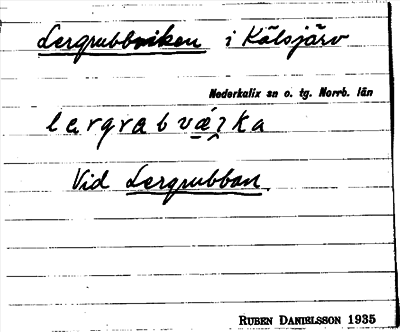 Lergrubbviken i Kälsjärv
Nederkalix sn o. tg. Norrb. län
Vid Lergrubban
RUBEN DANIELSSON 1935